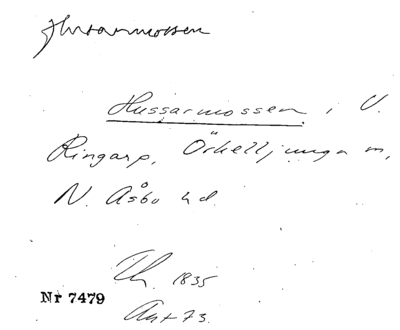 Hussarmossen
Hussarmossen i V.
Ringarp, Örkelljunga sn,
N. Åsbo hd.
1835
Nr 7479